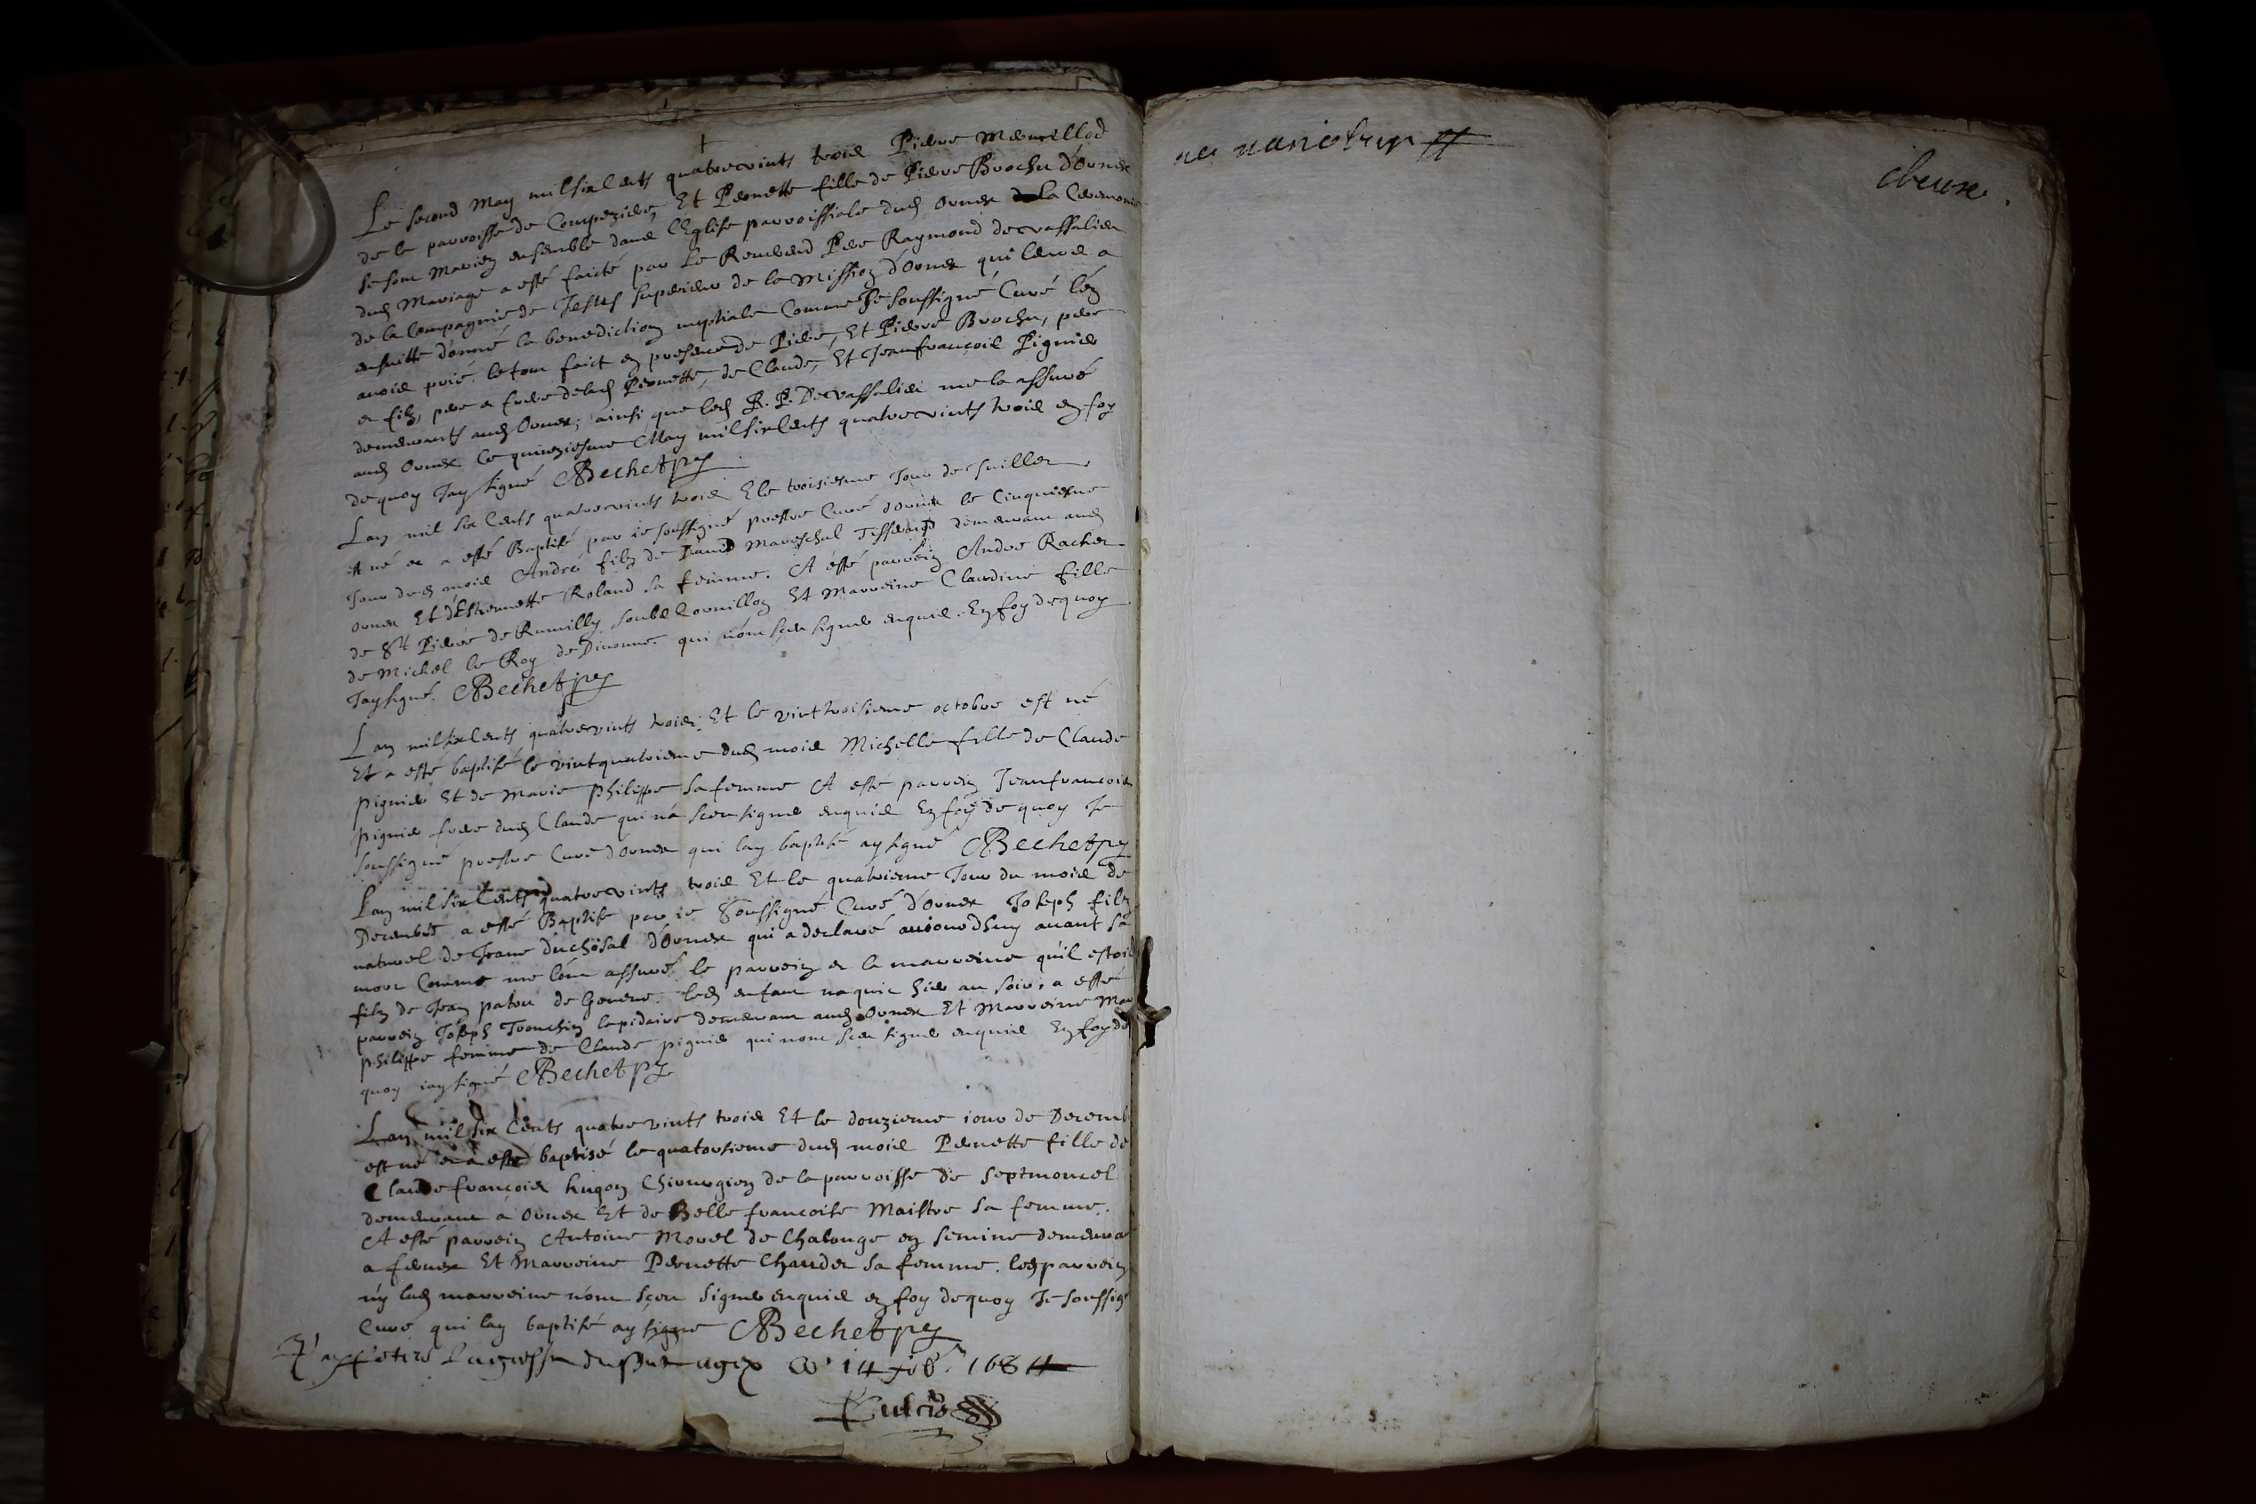 Le second May mil six Cents quatre vints trois Pierre Mermillod
de la parroisse de Compezière, Et Pernette fille de Pierre Brochu d'Ornex
se sont Mariez ensemble dans l'Eglise parroissiale dud Ornex la Ceremonie
dud Mariage a esté faicte par le Reverend Pere Raymond de vassalieu
de la Compagnie de Jesus superieur de la Mission d'Ornex qui leurs a
ensuitte donné la benediction nuptiale Comme Je soussigné Curé l'en
avois prié. le tout faict en presence de Pierre, Et Pierre Brochu, pere
et filz, pere et frere delad Pernette, de Claude, Et Jeanfrançois Pignier
demeurants aud Ornex; ainsi que led R. P. De vassalieu me la assuré
aud Ornex Ce quinziesme May mil six Cents quatre vints trois en foy
de quoy Jay signé Bechet pr
Lan mil six Cents quatre vints trois E le troisiesme Jour de Juillet
est né et a esté Baptisé par ie soussigné prestre Curé d'ornex le Cinquiesme
Jour dud mois André filz de David Mareschal Tisserand demeurant aud
ornex Et d'Estiennette Roland sa femme. A esté parrein Andre Rachet
de St Pierre de Rumilly soubs Cornillon Et Marreine Claudine fille
de Michel le Roy de Divonne. qui n'ont sçeu signer enquis. En foy de quoy
Jay signé. Bechet pr
Lan mil six Cents quatre vints trois Et le vint troisieme octobre est né
Et a esté baptisé le vint quatrieme dud mois Michelle fille de Claude
pignier Et de Marie Philippe sa femme A esté parrein Jeanfrancois
pignier frere dud Claude qui n'a sceu signer enquis En foy de quoy Je
soussigné prestre Curé d'ornex qui lay baptisé ay signé Bechet pr
Lan mil six Cents quatre vints trois Et le quatrieme Jour du mois de
Decembre a esté Baptisé par ie Soussigné Curé d'Ornex Joseph filz
naturel de Jeanne duchosal d'Ornex qui a declaré aujourd'huy avant sa
mort Comme me l'ont assuré le parrein et la marreine qu'il estoit
filz de Jean patru de Geneve. led enfant naquit hier au soir, a esté
parrein Joseph Tronchin lapidaire demeurant aud Ornex Et Marreine Mar
philippe femme de Claude pignier qui n'ont sceu signer enquis En foy de
quoy iay signé Bechet pr
Lan mil six Cents quatre vints trois Et le douzieme iour de Decemb
est né et a esté baptisé le quatorsieme dud mois Pernette fille de
Claude francois hugon Chirurgien de la parroisse de Septmoncel
demeurant a Ornex Et de Belle francoise Maistre sa femme.
A esté parrein Antoine Morel de Chalonge en semine demeura
a fernex Et Marreine Pernette Chauder sa femme. led parrein
ny lad marreine n'ont sçeu signer enquis en foy de quoy Je soussig
Curé qui lay baptisé ay signe Bechet pr
J'ay retiré a gex Ce 14 1684